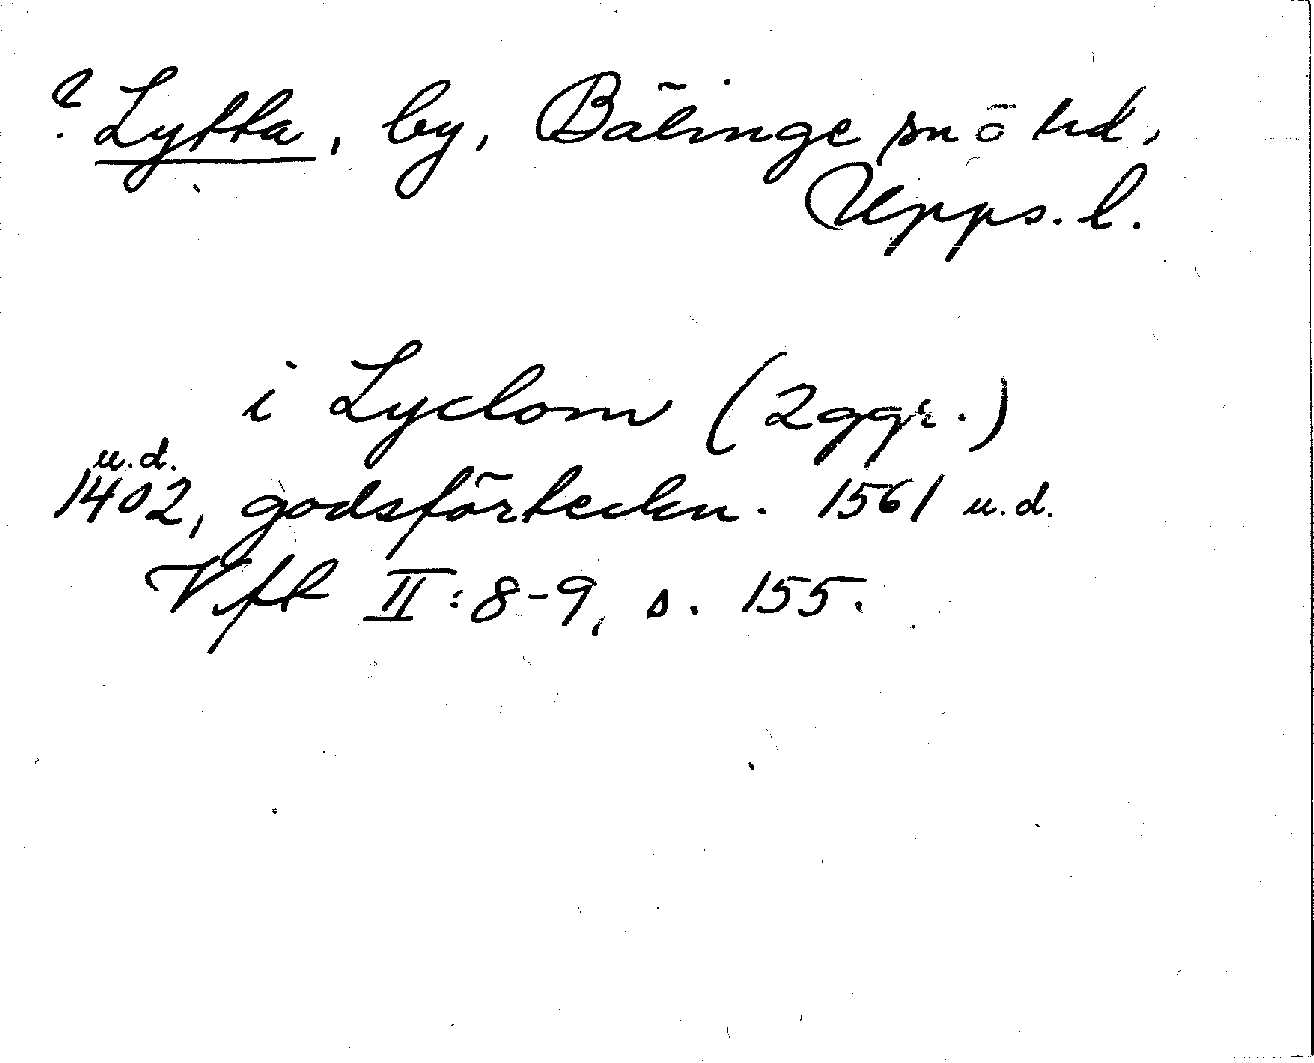 ? Lytta, by, Bälinge sn ō hd,
Upps. l.
i Lyclom (2ggr.)
u.d.
1402, godsförteckn. 1561 u.d.
Vft II:8-9, s. 155.